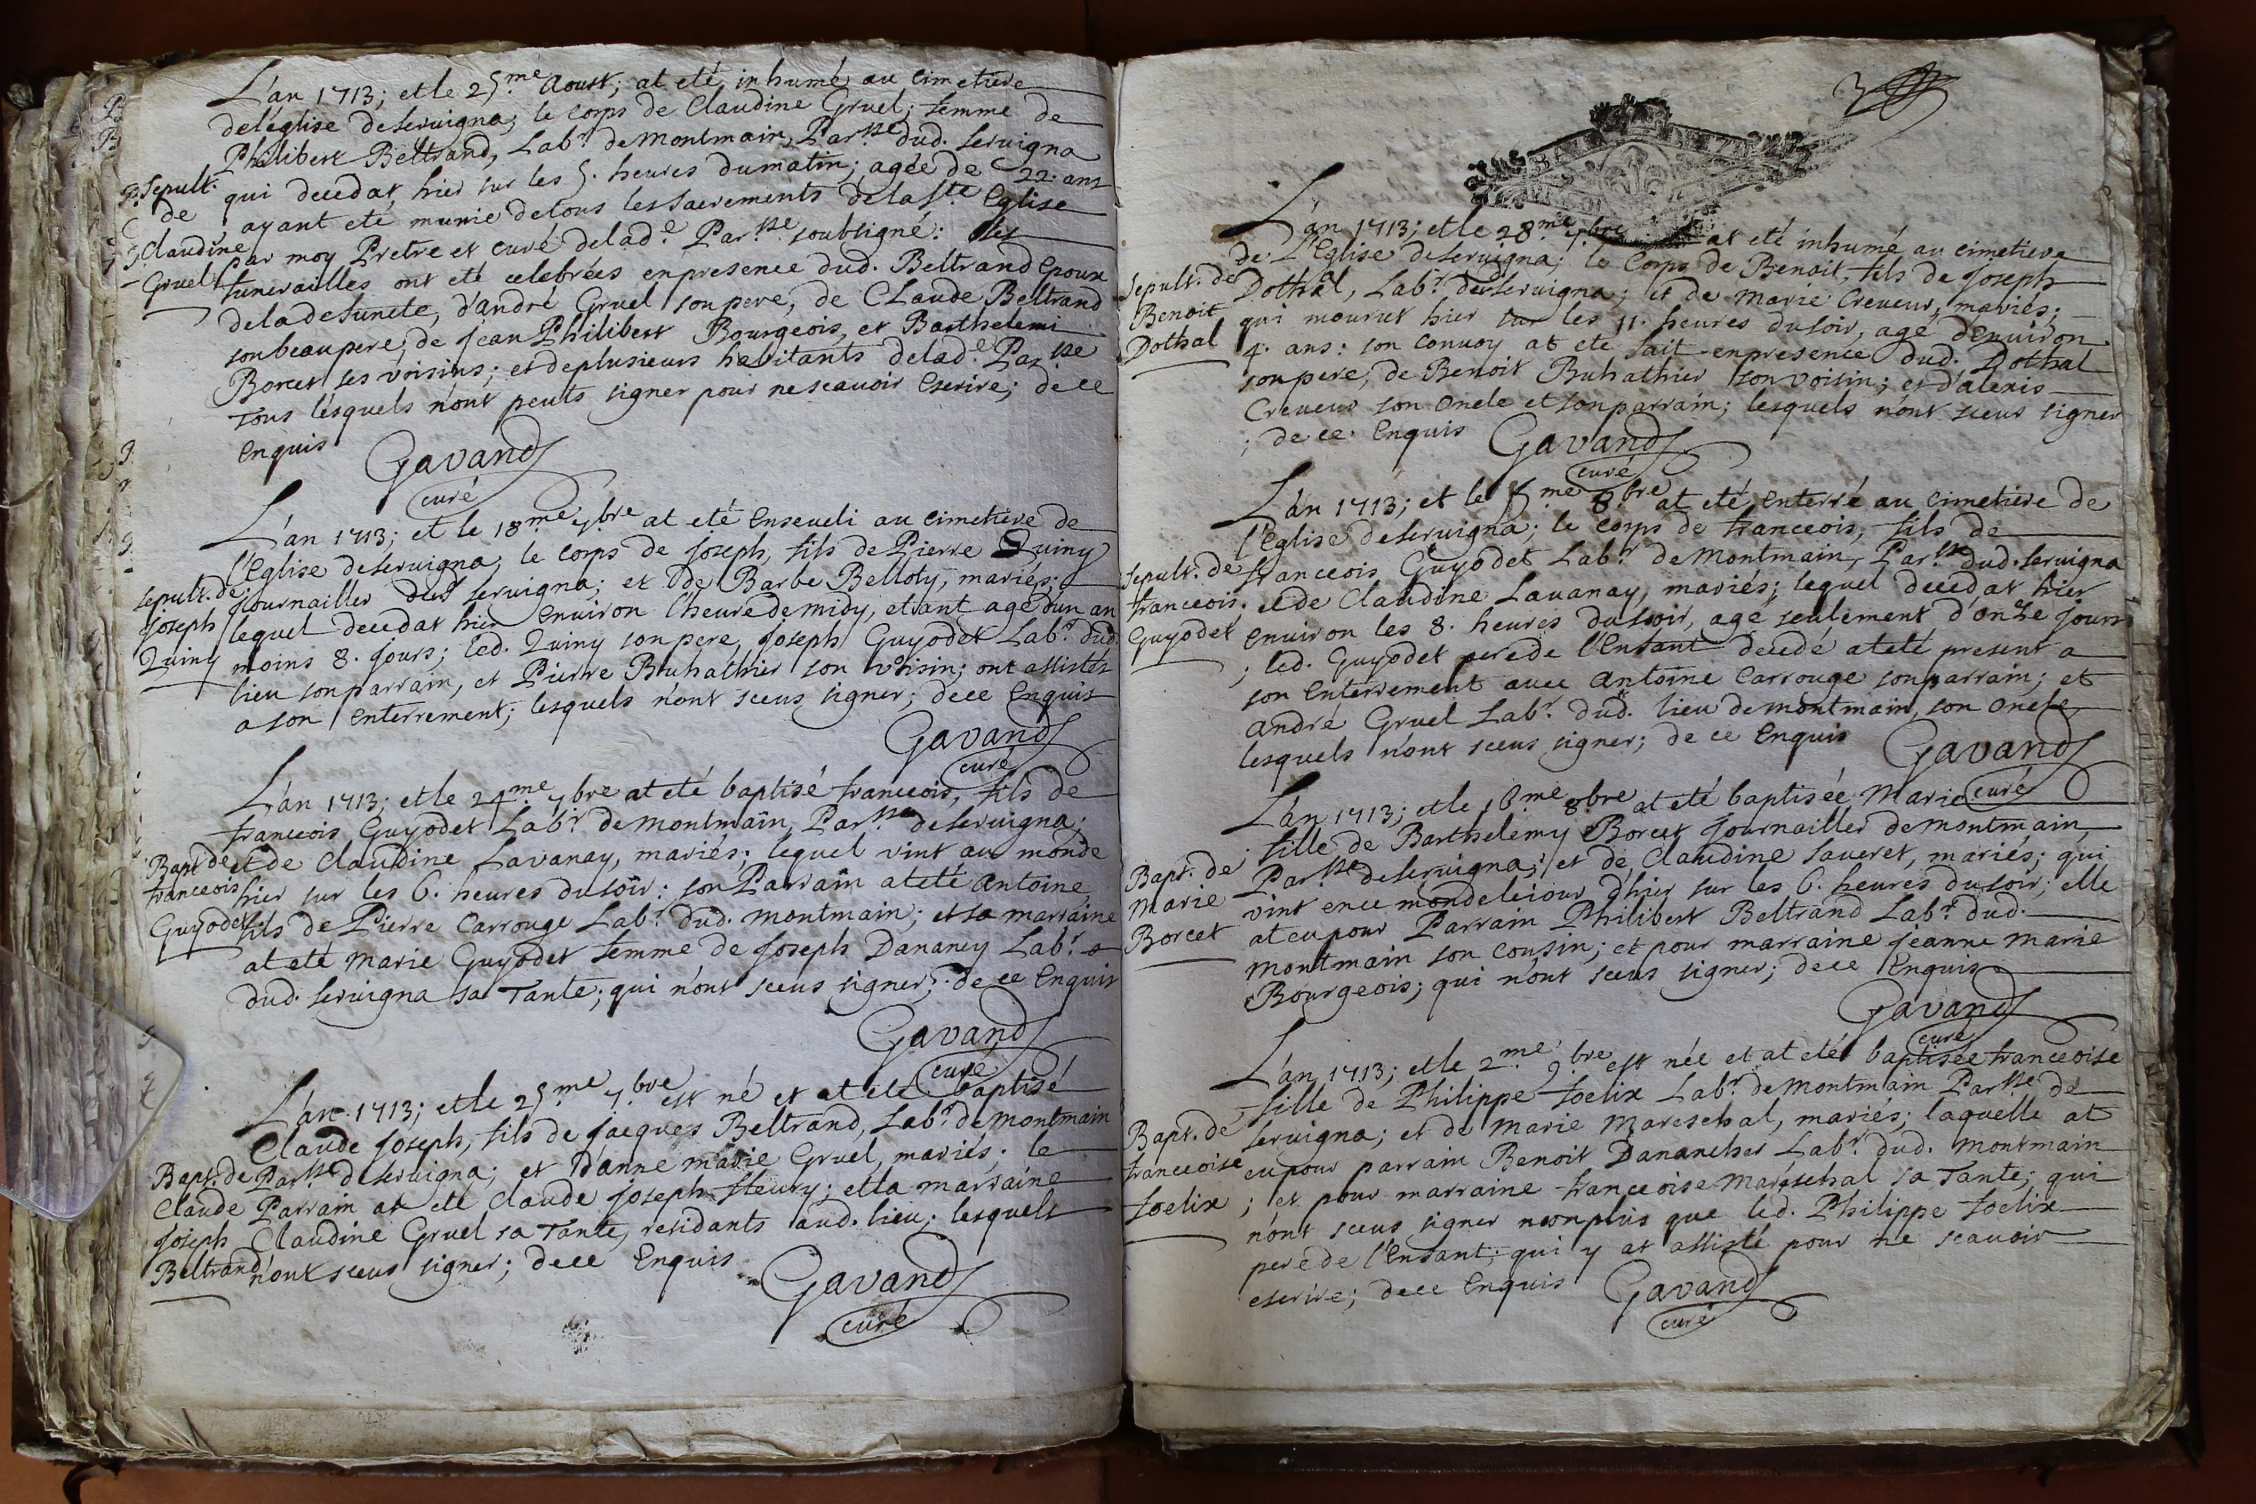 L'an 1713; et le 25.me Aoust; at eté inhumé au cimetiere
del'eglise deServigna; le corps de Claudine Gruel; femme de
Philibert Beltrand, Lab.r deMontmain, Par.sse dud. Servigna
qui decedat hier sur les 5. heures dumatin; agée de 22. ans
ayant eté munie detous lessacrements delaSte. Eglise
Par moy Pretre et curé delad.e Par.sse soubsigné: Ses
funerailles ont eté celebrées enpresence dud. Beltrand Epoux
deladefuncte, d'andré Gruel sonpere, de Claude Beltrand
sonbeaupere; de jean Philibert Bourgeois, et Barthelemi
Borcet ses voisins; et deplusieurs habitants delad.e Par.sse
Tous lesquels n'ont peuts signer pour nescauoir Escrire; dece
Enquis
Sepult.
de
Claudine
Gruel
Gavand
curé
L'an 1713; et le 18.me 7.bre at eté Enseveli au cimetiere de
l'Eglise deServigna; le corps de joseph, fils de Pierre Quiny
journallier dud. Servigna; et de Barbe Belloty, mariés;
lequel decedat hier Environ l'heure de midy, etant agé d'un an
moins 8. jours; led. Quiny son pere, joseph Guyodet Lab.r dud.
lieu sonparrain, et Pierre Bruhathier son voisin; ont assistés
a son Enterrement; lesquels n'ont sceus signer; dece Enquis
Sepult. de
joseph
Quiny
Gavand
curé
L'an 1713; et le 24.me 7.bre at eté baptisé franceois, fils de
franceois Guyodet Lab.r deMontmain, Par.sse deServigna;
et de Claudine Lavanay, mariés; lequel vint au monde
hier sur les 6. heures dusoir: son Parrain at eté Antoine
fils de Pierre Carrouge Lab.r dud. Montmain; et sa marraine
at eté Marie Guyodet femme de joseph Dananey Lab.r
dud. Servigna sa Tante; qui n'ont sceus signer; de ce Enquis
Bapt. de
franceois
Guyodet
Gavand
curé
L'an 1713; et le 25.me 7.bre est né et at eté baptisé
Claude joseph, fils de jacques Beltrand, Lab.r deMontmain
Par.sse deServigna; et d'anne marie Gruel, mariés. le
Parrain at eté Claude joseph fleury; etla marraine
Claudine Gruel sa Tante, residants aud. lieu; lesquels
n'ont sceus signer; dece Enquis
Bapt. de
Claude
joseph
Beltrand
Gavand
curé
L'an 1713; et le 28.me 7.bre at eté inhumé au cimetiere
de L'Eglise deServigna; le Corps de Benoit, fils de joseph
Dothal, Lab.r dud. Servigna; et de Marie Creveur, mariés;
qui mourut hier sur les 11. heures dusoir, agé d'Environ
4. ans: son convoy at eté fait enpresence dud. Dothal
sonpere, de Benoit Buhathier son voisin; et d'alexis
Creveur son Oncle et sonparrain; lesquels n'ont sceus signer
; de ce. Enquis
Sepult. de
Benoit
Dothal
Gavand
curé
L'an 1713; et le 5.me 8.bre at eté Enterré au cimetiere de
l'Eglise deServigna; le corps de franceois, fils de
franceois Guyodet Lab.r de Montmain, Par.sse dud. Servigna
et de Claudine Lavanay, mariés; lequel decedat hier
Environ les 8. heures dusoir, agé seulement d'onze jours
; led. Guyodet perede l'Enfant decedé at eté present a
son Enterrement avec Antoine Carrouge sonparrain; et
André Gruel Lab.r dud. lieu demontmain, son Oncle
lesquels n'ont sceus signer; de ce Enquis
Sepult. de
franceois
Guyodet
Gavand
curé
L'an 1713; et le 16.me 8.bre at eté baptisée Marie
fille de Barthelemy Borcet journallier deMontmain,
Par.sse deServigna; et de Claudine Saveret, mariés; qui
vint ence mondelejour d'hier sur les 6. heures dusoir; elle
at eu pour Parrain Philibert Beltrand Lab.r dud.
Montmain son cousin; et pour marraine jeanne Marie
Bourgeois; qui n'ont sceus signer; dece Enquis
Bapt. de
Marie
Borcet
Gavand
curé
L'an 1713; et le 2.me 9.bre est née et at eté baptisée franceoise
fille de Philippe foelix Lab.r deMontmain Par.sse de
Servigna; et de Marie Mareschal, mariés; laquelle at
eupour parrain Benoit Danancher Lab.r dud. Montmain
; et pour marraine franceoise Mareschal sa Tante; qui
n'ont sceus signer nonplus que led. Philippe foelix
perede l'Enfant; qui y at assisté pour ne scavoir
escrire; dece Enquis
Bapt. de
franceoise
foelix
Gavand
curé